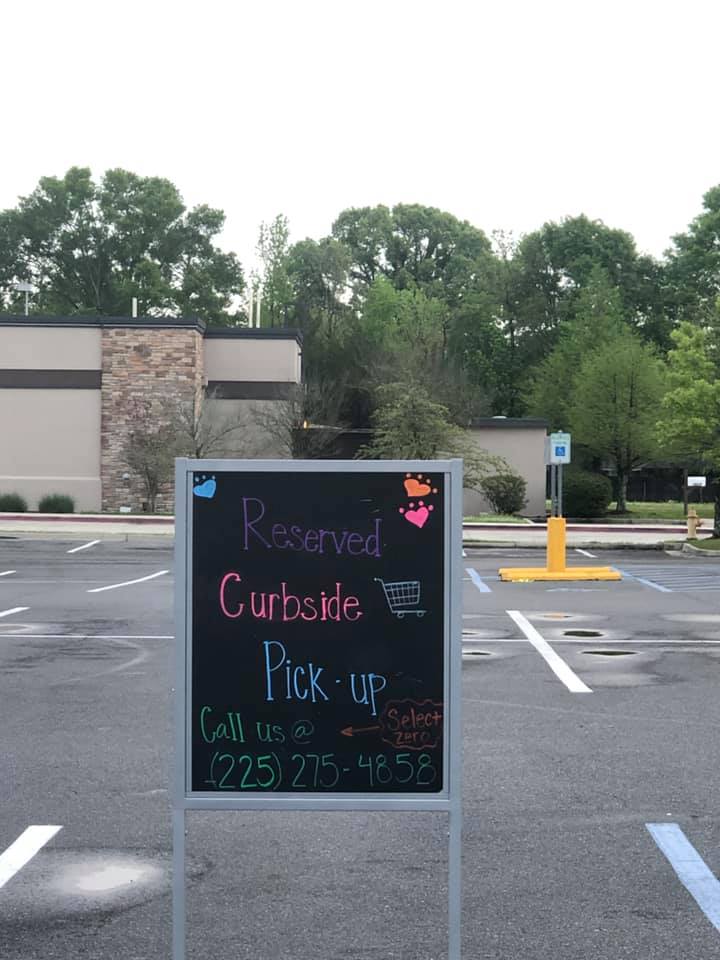 Reserved
Curbside
Pick-up
Call us @
Select
zero
(225) 275-4858